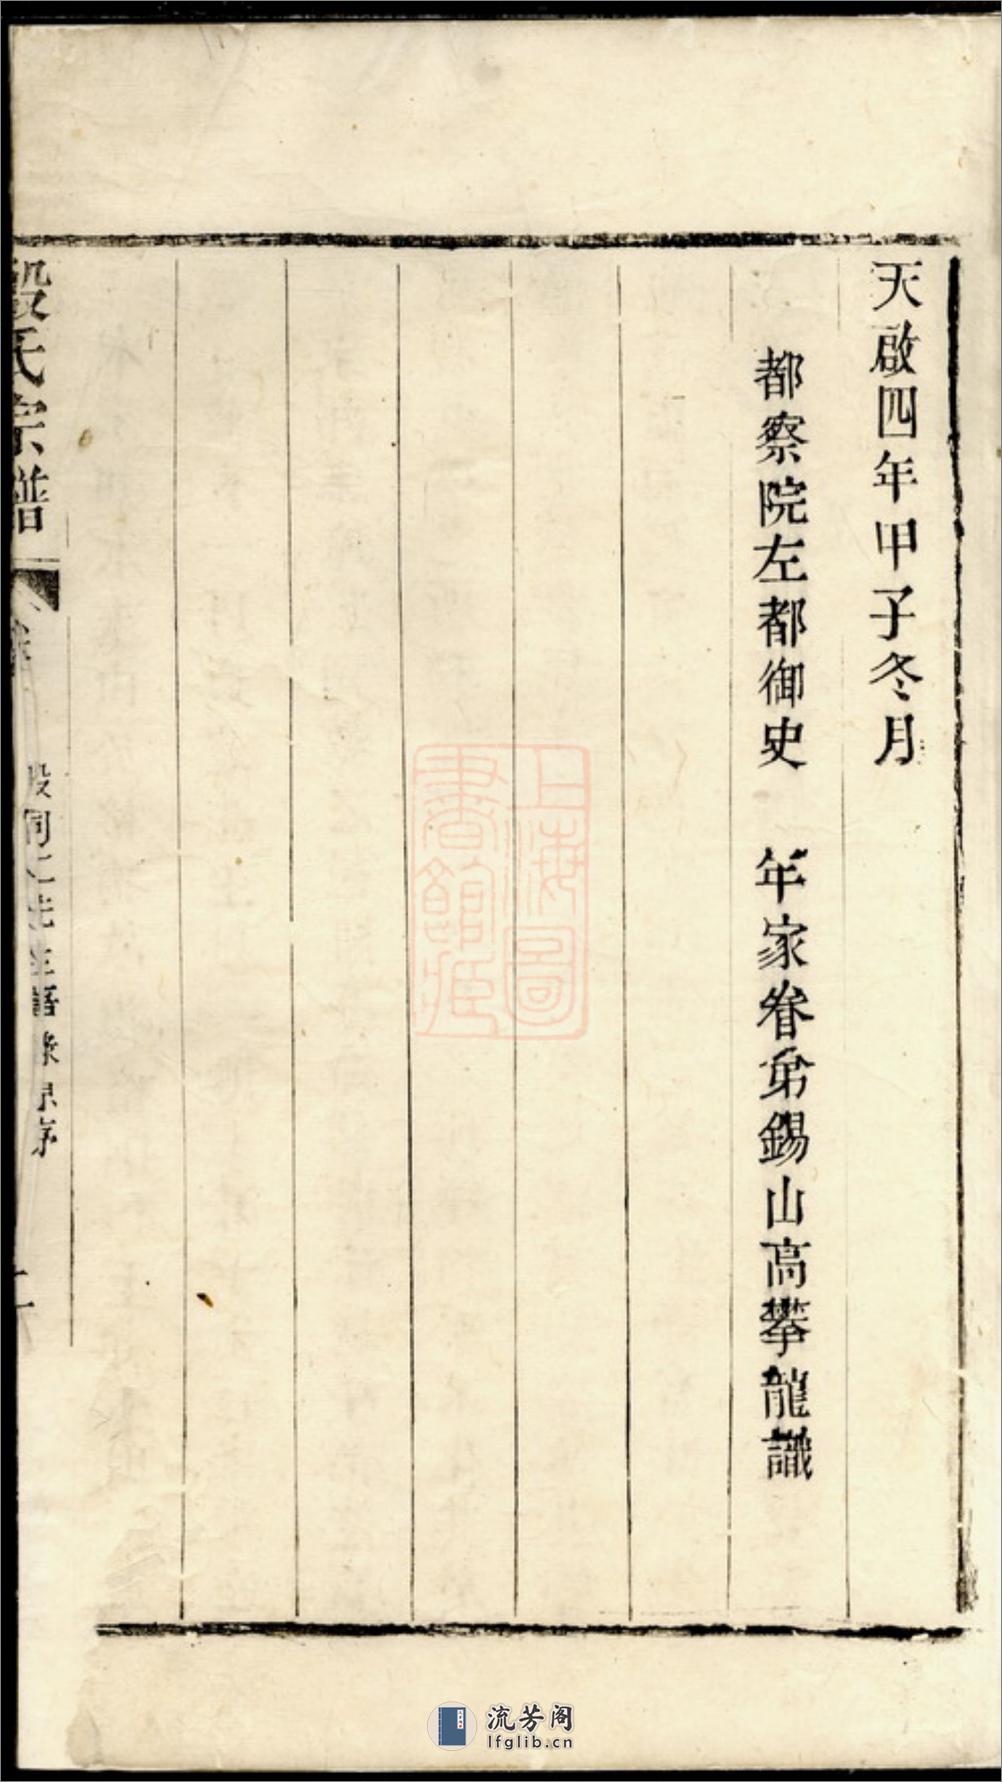 天啟四年甲子冬月
都察院左都御史　年家眷弟錫山高攀龍識
殷氏宗譜
卷
殷同仁先生語錄原序
二
上海圖書館藏
流芳阁
lfglib.cn